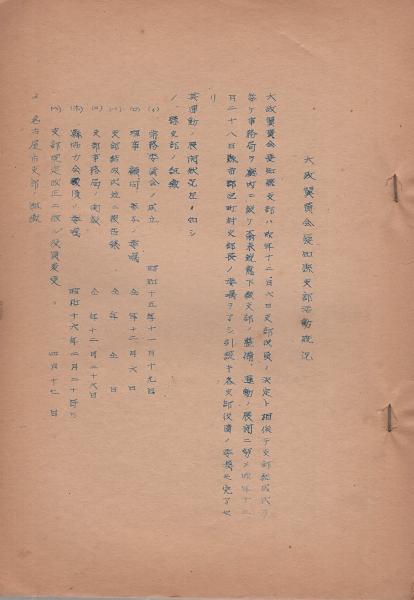 大政翼賛会愛知県支部活動概況
大政翼賛会愛知県支部ハ昨年十二月六日支部役員ノ決定ト相俟テ支部結成式ヲ
挙ゲ事務局ヲ庁内ニ設ケ爾来鋭意下級支部ノ整備、運動ノ展開ニ努メ昨年十二
月二十八日数市郡区町村支部長ノ委嘱ヲナシ引続キ各支部役員ノ委嘱モ完了セ
リ
其運動ノ展開状況左ノ如シ
ノ、県支部ノ組織
(イ) 常務委員会ノ成立 昭和十五年十一月十九日
(ロ) 理事、顧問、参与ノ委嘱 仝年十二月六日
(ハ) 支部結成式並ニ役員総 仝年仝日
(ニ) 支部事務局ノ開設 仝年十二月二十八日
(ホ) 県協力会議員ノ委嘱 昭和十六年二月二十日
(ヘ) 支部規定改正ニ依ル役員変更 四月十七日
2 名古屋市支部ノ組織